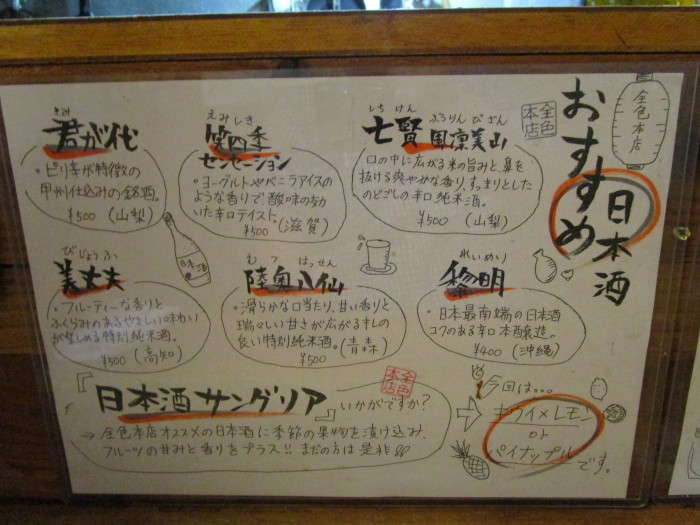 おすすめ
日本酒
全色本店
全色本店
しちけん ふうりんびざん
七賢 風凛美山
口の中に広がる米の旨みと、鼻を
抜ける爽やかな香り。すっきりとした
のどごしの辛口純米酒。
¥500 (山梨)
えみしき
笑四季
センセーション
・ヨーグルトやバニラアイスの
ような香りで酸味の効
いた辛口テイスト。
¥500 (滋賀)
きみ
君が代
・ピリ辛が特徴の
甲州仕込みの銘酒。
¥500 (山梨)
日本酒
れいめい
黎明
・日本最南端の日本酒
コクのある辛口本醸造。
¥400 (沖縄)
むつ はっせん
陸奥八仙
・滑らかな口当たり、甘い香りと
瑞々しい甘さが広がるキレの
良い特別純米酒。
¥500 (青森)
びじょうふ
美丈夫
・フルーティーな香りと
ふくらみのあるやさしい味わい
が楽しめる特別純米酒。
¥500 (高知)
『日本酒サングリア』いかがですか?
全色本店
→ 全色本店オススメの日本酒に季節の果物を漬け込み、
フルーツの甘みと香りをプラス!! まだの方は是非
今回は…
キウイ×レモン
or
パイナップル
です。